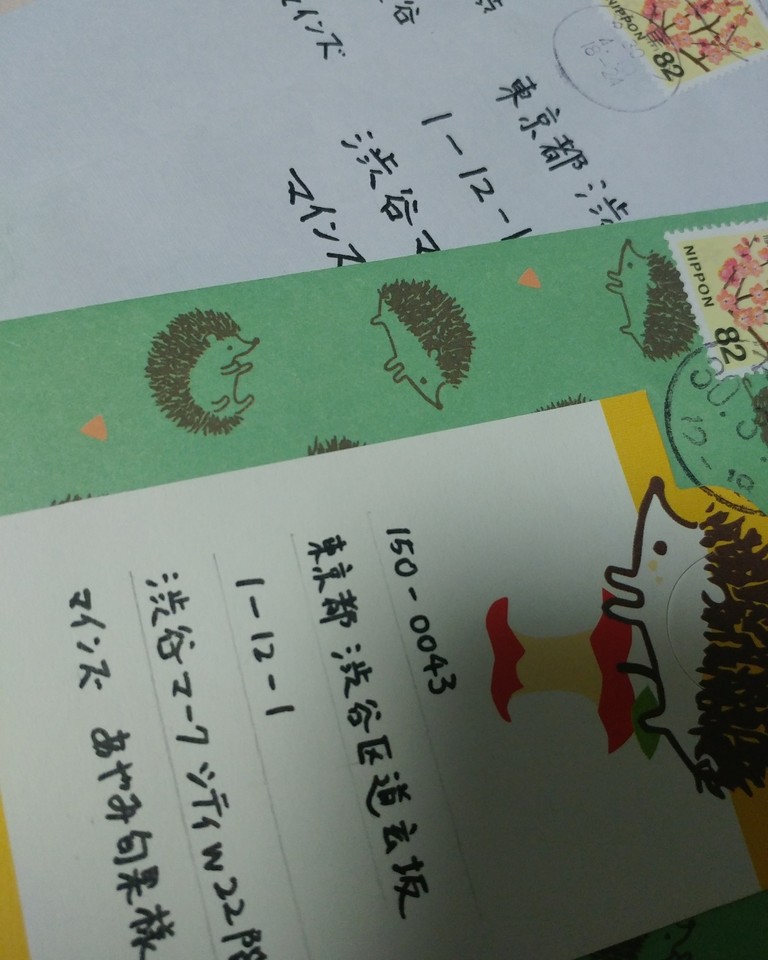 マインズ
谷
NIPPON
82
東京都 渋
1-12-1
渋谷マ
マインズ
NIPPON
82
150-0043
東京都 渋谷区道玄坂
1-12-1
渋谷マークシティW22階
マインズ あやみ旬果様